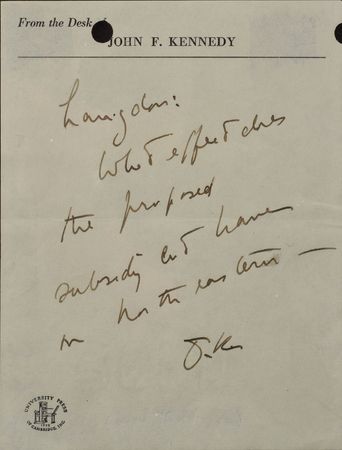 From the Desk of
JOHN F. KENNEDY
Langdon:
What effect does
the proposed
subsidy cut have
on Northeastern —
J.K.
UNIVERSITY PRESS
OF CAMBRIDGE, INC.